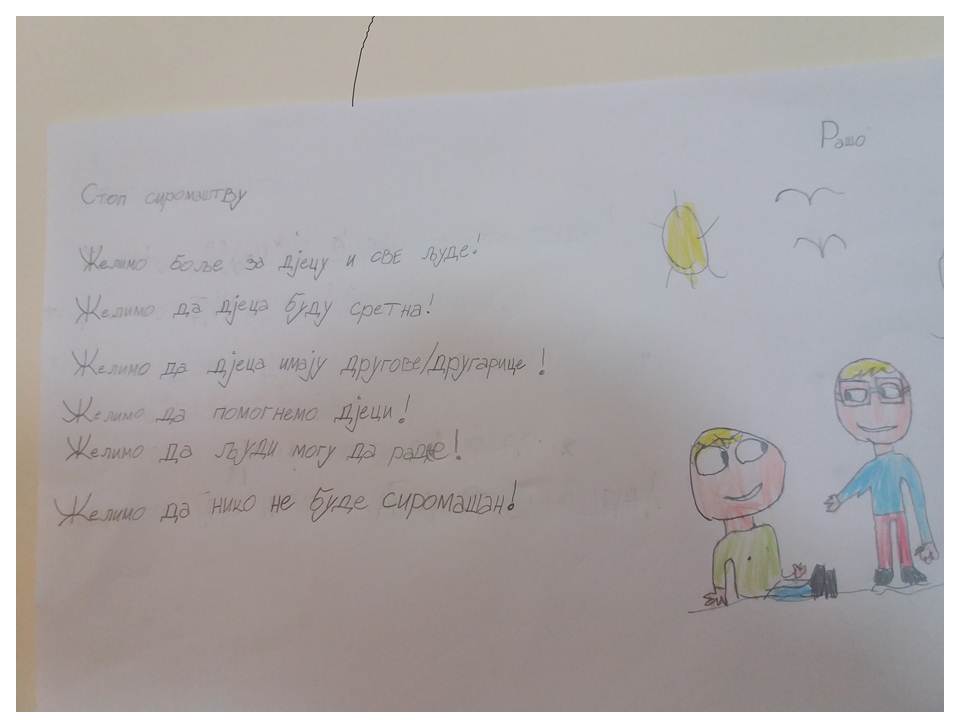 Рашо
Стоп сиромаштву
Желимо боље за дјецу и све људе!
Желимо да дјеца буду сретна!
Желимо да дјеца имају другове/другарице!
Желимо да помогнемо дјеци!
Желимо да људи могу да раде!
Желимо да нико не буде сиромашан!